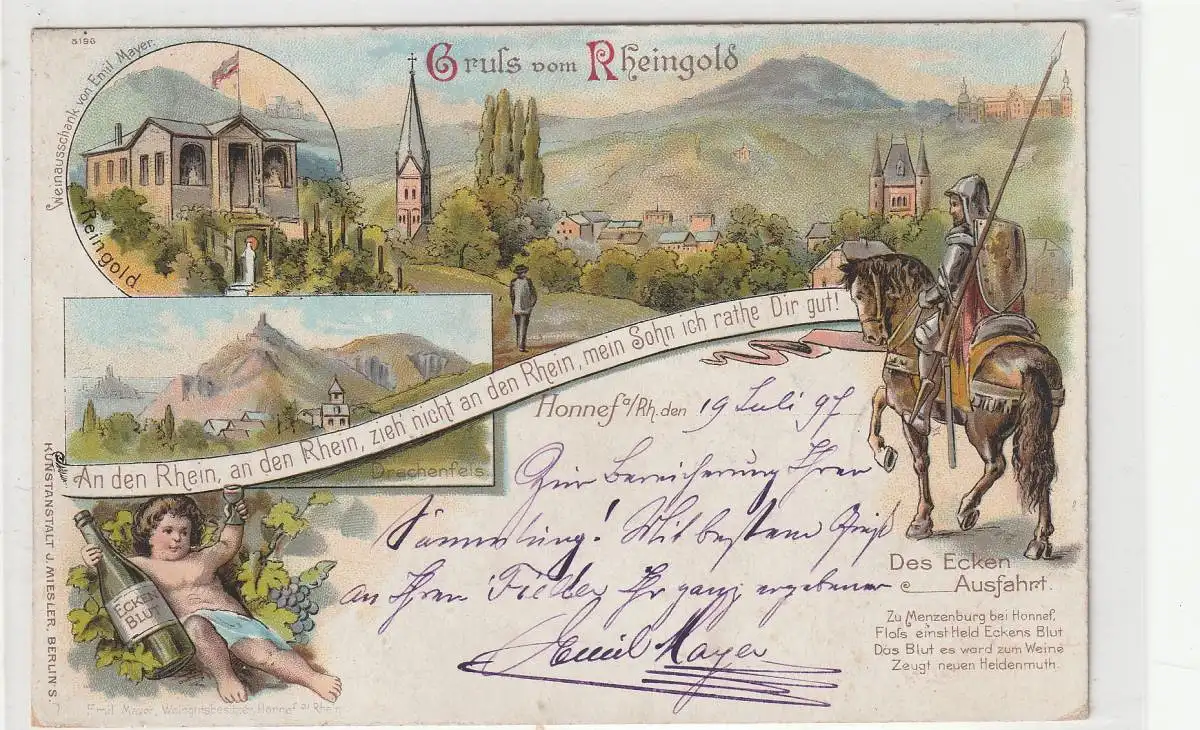 5196
Gruſs vom Rheingold
Weinausschank von Emil Mayer.
Reingold
An den Rhein, an den Rhein, zieh nicht an den Rhein, mein Sohn ich rathe Dir gut!
Drachenfels.
Honnef a/Rh. den 19 Juli 97
Zur Bereicherung Ihrer
Sammlung! Mit bestem Gruß
an Ihren Ihr ganz ergebener
Emil Mayer
ECKEN
BLUT
Des Ecken
Ausfahrt.
Zu Menzenburg bei Honnef,
Floſs einst Held Eckens Blut
Das Blut es ward zum Weine
Zeugt neuen Heldenmuth.
KUNSTANSTALT J. MIESLER, BERLIN S.
Emil Mayer, Weingutsbesitzer, Honnef a/ Rhein